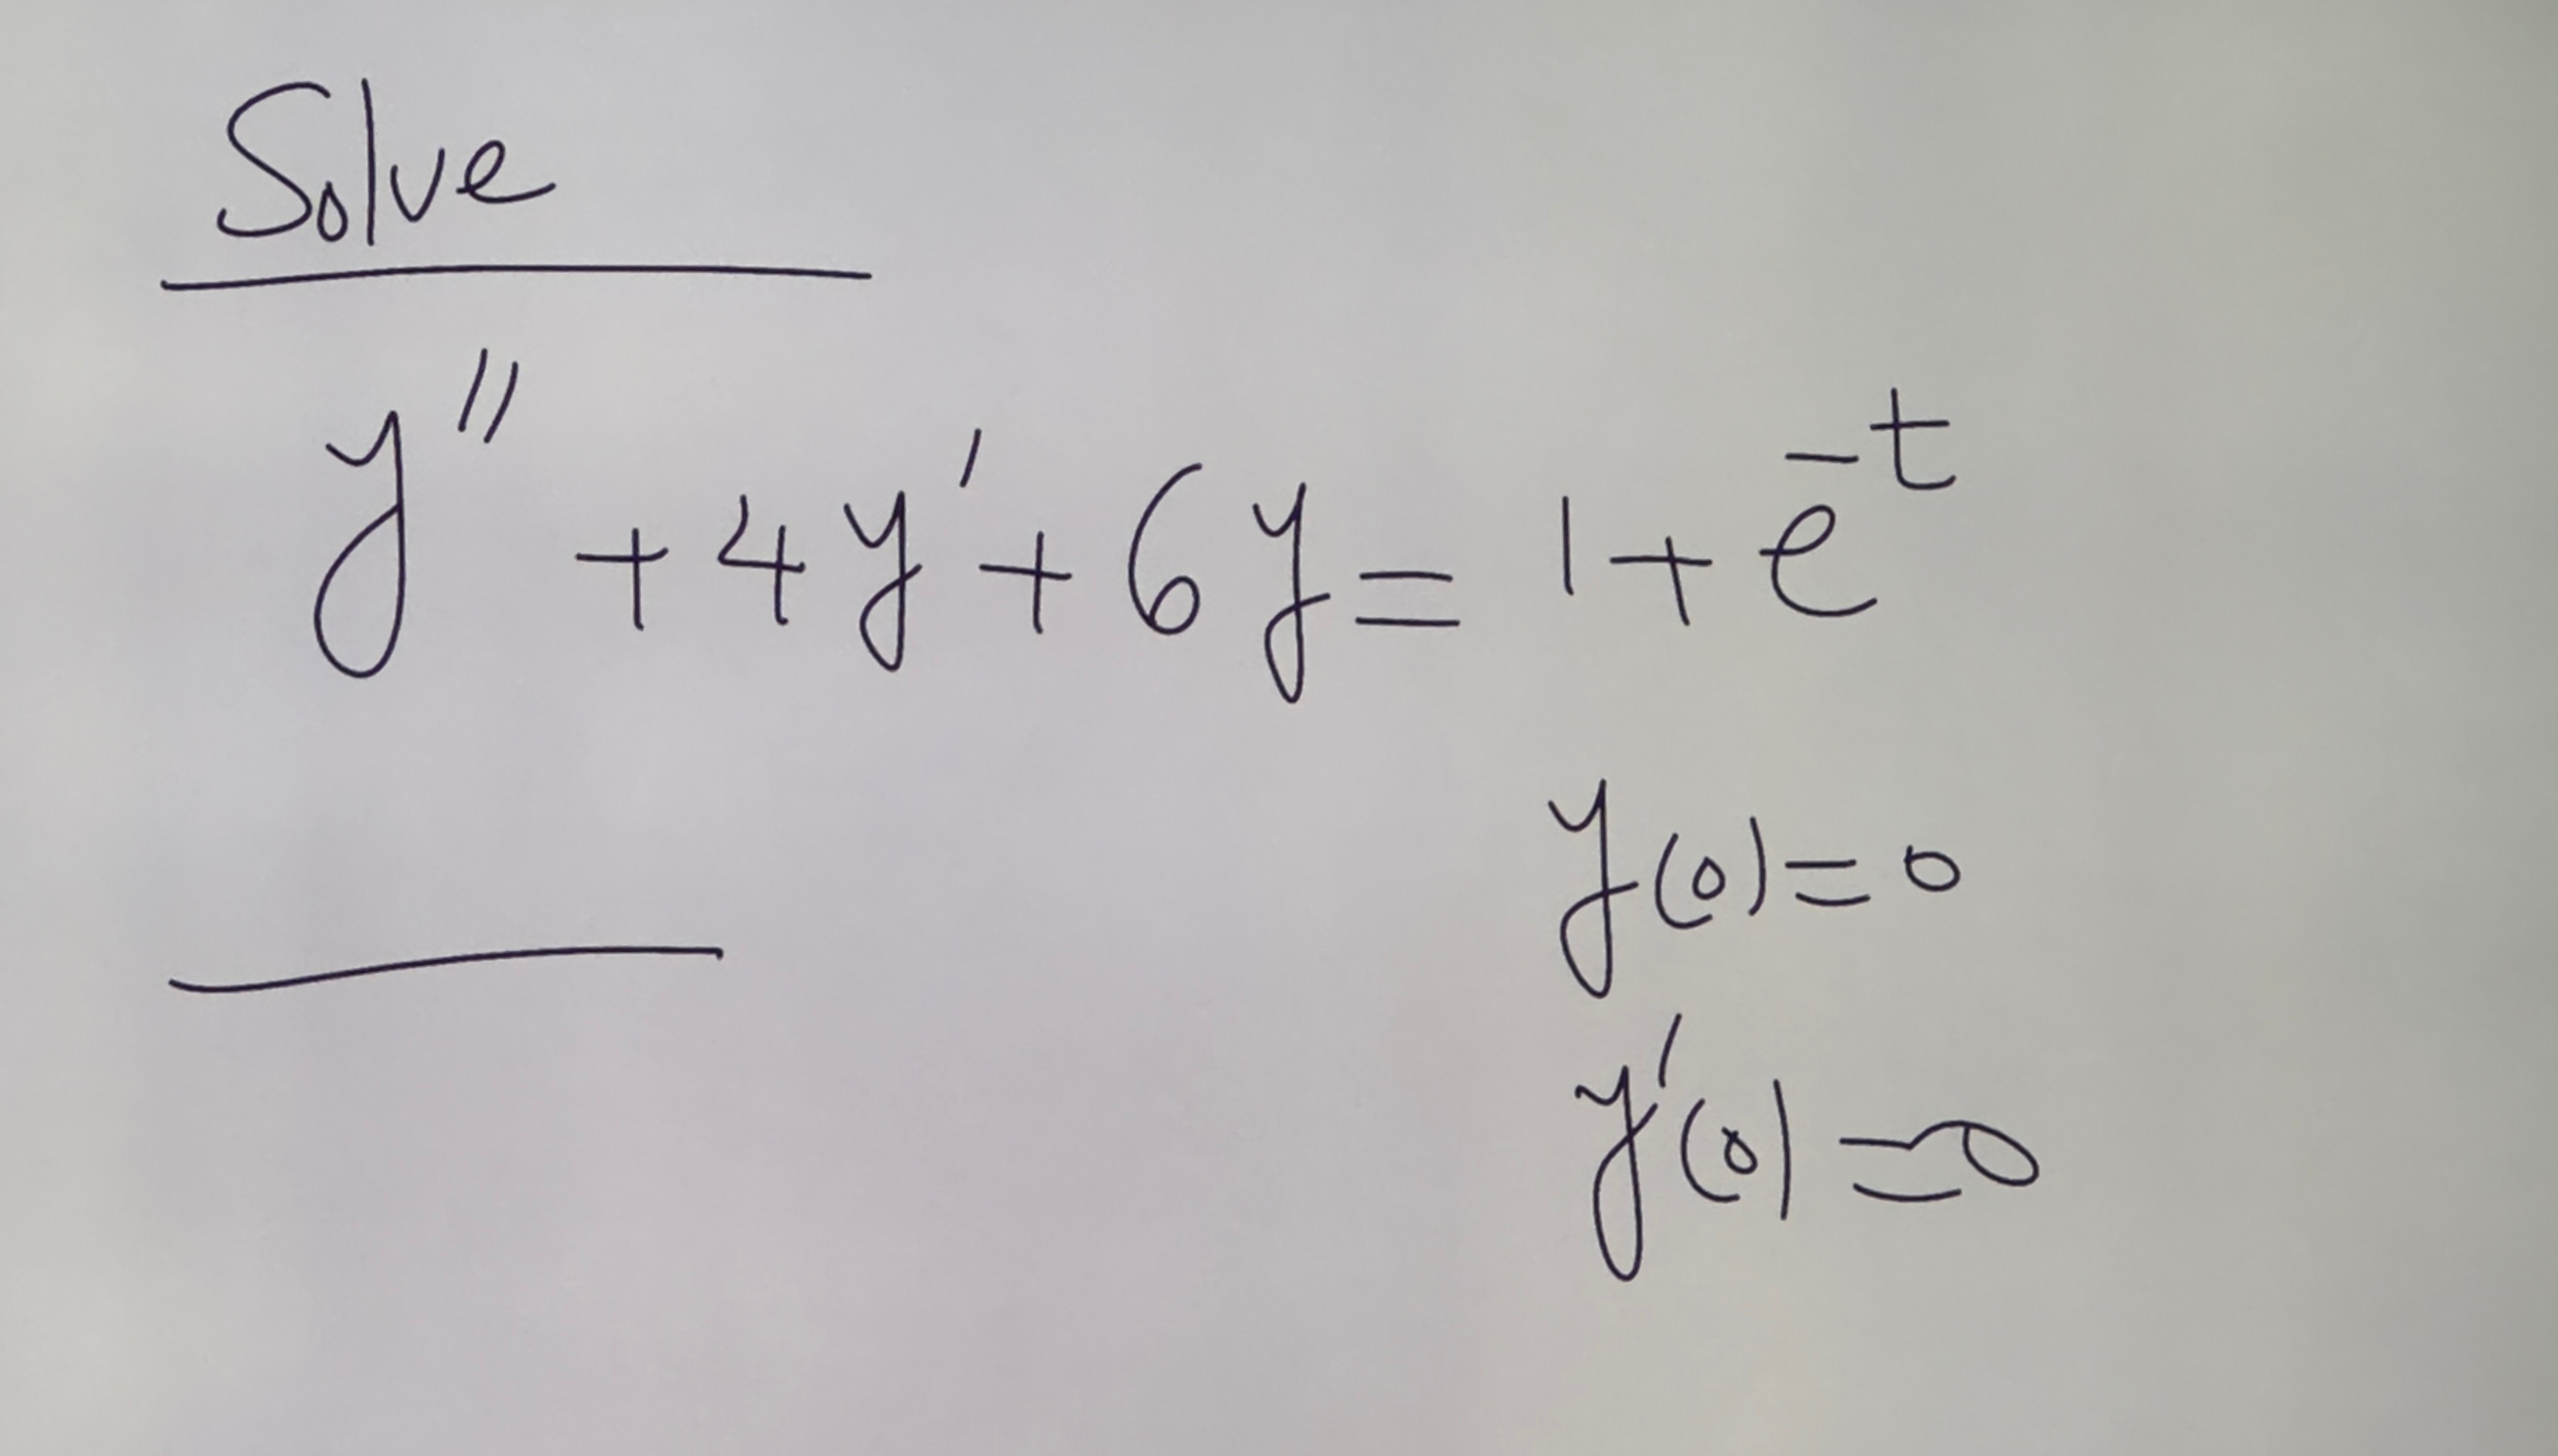 Solve
y'' + 4y' + 6y = 1 + e^{-t}
y(0) = 0
y'(0) = 0